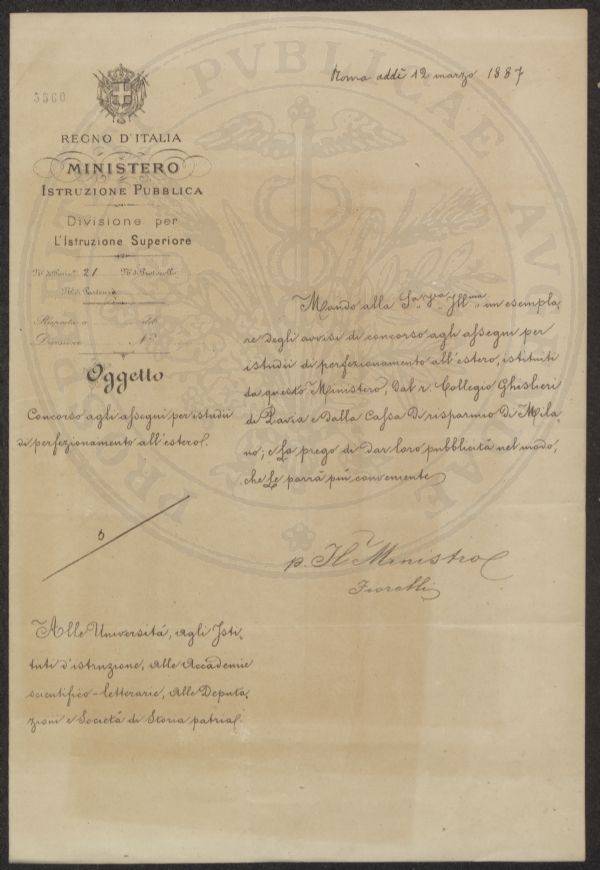 Roma addì 12 marzo 1887
5560
REGNO D'ITALIA
MINISTERO
ISTRUZIONE PUBBLICA
Divisione per
L'Istruzione Superiore
N.º di Posiz.e 21 N.º di Protocollo
N.º di Partenza
Risposta a del
Divisione N.º
Oggetto
Concorso agli assegni per istudii
di perfezionamento all'estero.
Mando alla S.a V.ra Ill.ma un esempla-
re degli avvisi di concorso agli assegni per
istudii di perfezionamento all'estero, istituiti
da questo Ministero, dal r. Collegio Ghislieri
di Pavia e dalla Cassa di risparmio di Mila-
no; e La prego di dar loro pubblicità nel modo,
che Le parrà più conveniente
p. Il Ministro
Fiorelli
Alle Università, agli Isti-
tuti d'istruzione, alle Accademie
scientifico-letterarie, alle Deputa-
zioni e Società di Storia patria.
PVBLICAE